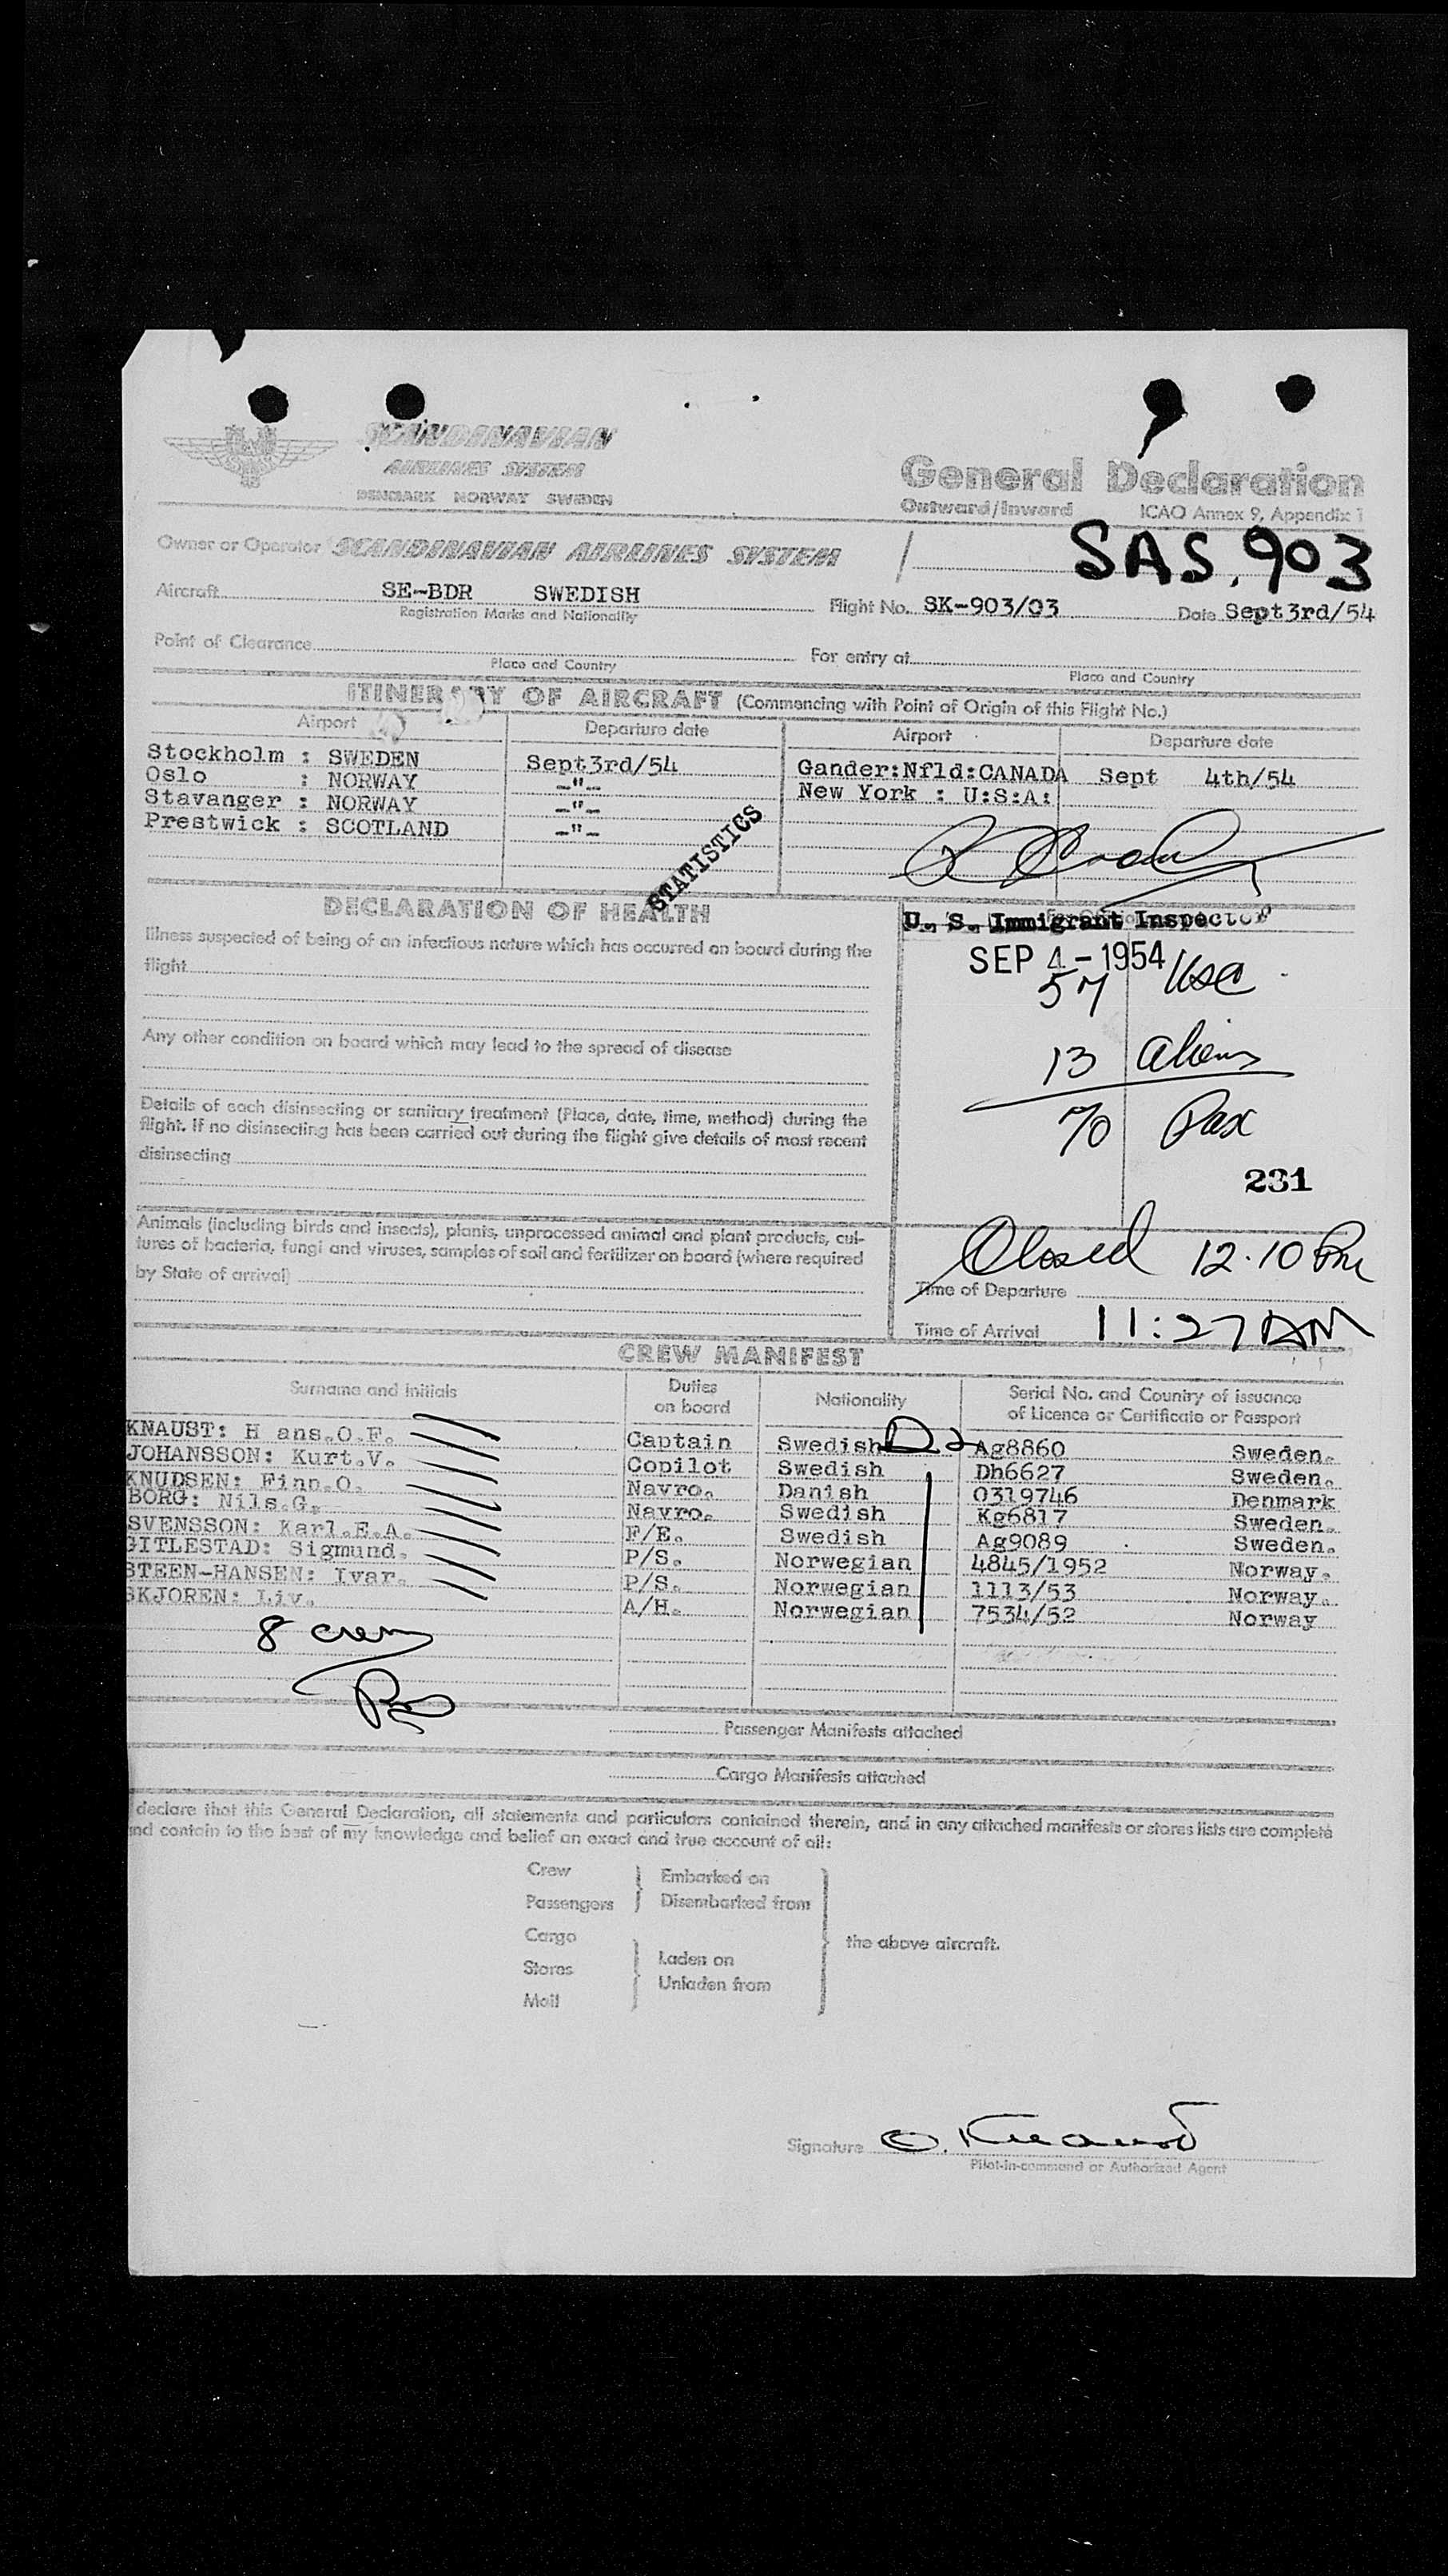 SCANDINAVIAN
AIRLINES SYSTEM
DENMARK NORWAY SWEDEN
General Declaration
Outward/Inward ICAO Annex 9, Appendix 1
SAS. 903
Owner or Operator SCANDINAVIAN AIRLINES SYSTEM
Aircraft SE-BDR SWEDISH Flight No. SK-903/03 Date Sept3rd/54
Registration Marks and Nationality
Point of Clearance For entry at
Place and Country Place and Country
ITINERARY OF AIRCRAFT (Commencing with Point of Origin of this Flight No.)
Airport Departure date Airport Departure date
Stockholm : SWEDEN Sept3rd/54 Gander:Nfld:CANADA Sept 4th/54
Oslo : NORWAY -"- New York : U:S:A:
Stavanger : NORWAY -"-
Prestwick : SCOTLAND -"-
STATISTICS
DECLARATION OF HEALTH
U. S. Immigrant Inspector
Illness suspected of being of an infectious nature which has occurred on board during the
flight
SEP 4 - 1954
57 USC
Any other condition on board which may lead to the spread of disease
13 aliens
70 Pax
Details of each disinsecting or sanitary treatment (Place, date, time, method) during the
flight. If no disinsecting has been carried out during the flight give details of most recent
disinsecting
231
Animals (including birds and insects), plants, unprocessed animal and plant products, cul-
tures of bacteria, fungi and viruses, samples of soil and fertilizer on board (where required
by State of arrival)
Closed 12.10 Pm
Time of Departure
Time of Arrival 11:27 AM
CREW MANIFEST
Surname and initials Duties on board Nationality Serial No. and Country of issuance of Licence or Certificate or Passport
KNAUST: H ans.O.F. Captain Swedish Ag8860 Sweden.
JOHANSSON: Kurt.V. Copilot Swedish Dh6627 Sweden.
KNUDSEN: Finn.O. Navro. Danish 0319746 Denmark
BORG: Nils.G. Navro. Swedish Kg6817 Sweden.
SVENSSON: Karl.E.A. F/E. Swedish Ag9089 Sweden.
GITLESTAD: Sigmund. P/S. Norwegian 4845/1952 Norway.
STEEN-HANSEN: Ivar. P/S. Norwegian 1113/53 Norway.
SKJOREN: Liv. A/H. Norwegian 7534/52 Norway
8 crew
Passenger Manifests attached
Cargo Manifests attached
declare that this General Declaration, all statements and particulars contained therein, and in any attached manifests or stores lists are complete
and contain to the best of my knowledge and belief an exact and true account of all:
Crew Embarked on
Passengers Disembarked from
Cargo the above aircraft.
Laden on
Stores
Unladen from
Mail
Signature O. Knaust
Pilot-in-command or Authorized Agent